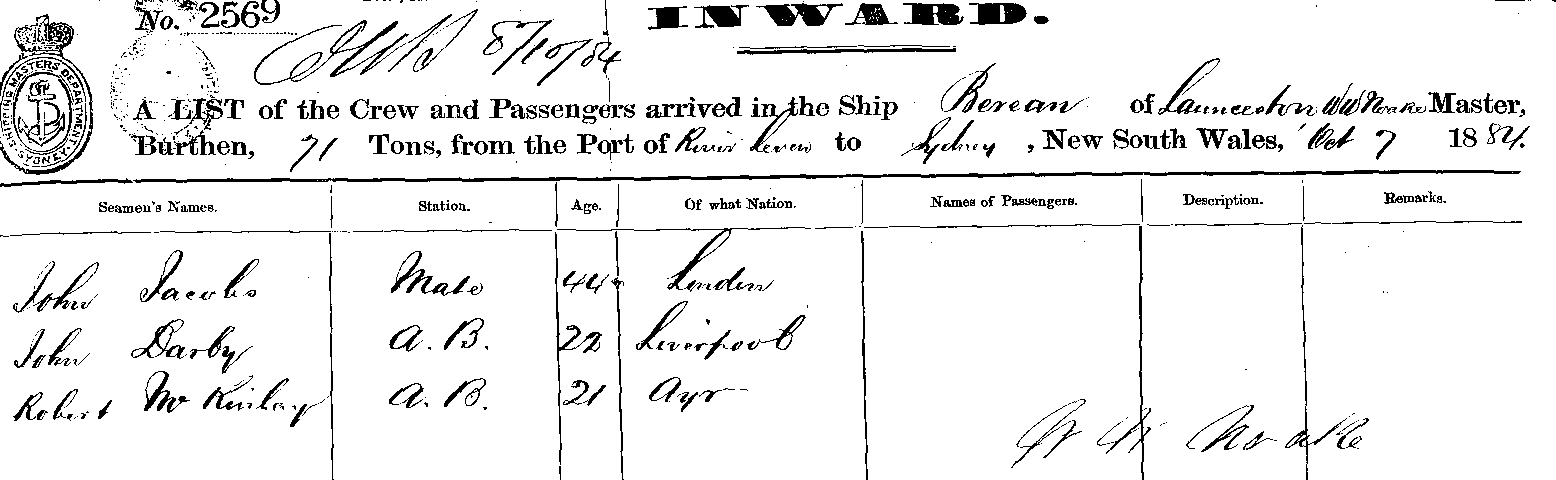 No. 2569
INWARD.
8/10/84
SHIPPING MASTERS DEPARTMENT SYDNEY
A LIST of the Crew and Passengers arrived in the Ship Berean of Launceston W W Noake Master,
Burthen, 71 Tons, from the Port of River Leven to Sydney, New South Wales, Oct 7 1884.
Seamen's Names. Station. Age. Of what Nation. Names of Passengers. Description. Remarks.
John Jacobs Mate 44 London
John Darby A.B. 22 Liverpool
Robert McKinlay A.B. 21 Ayr
W W Noake